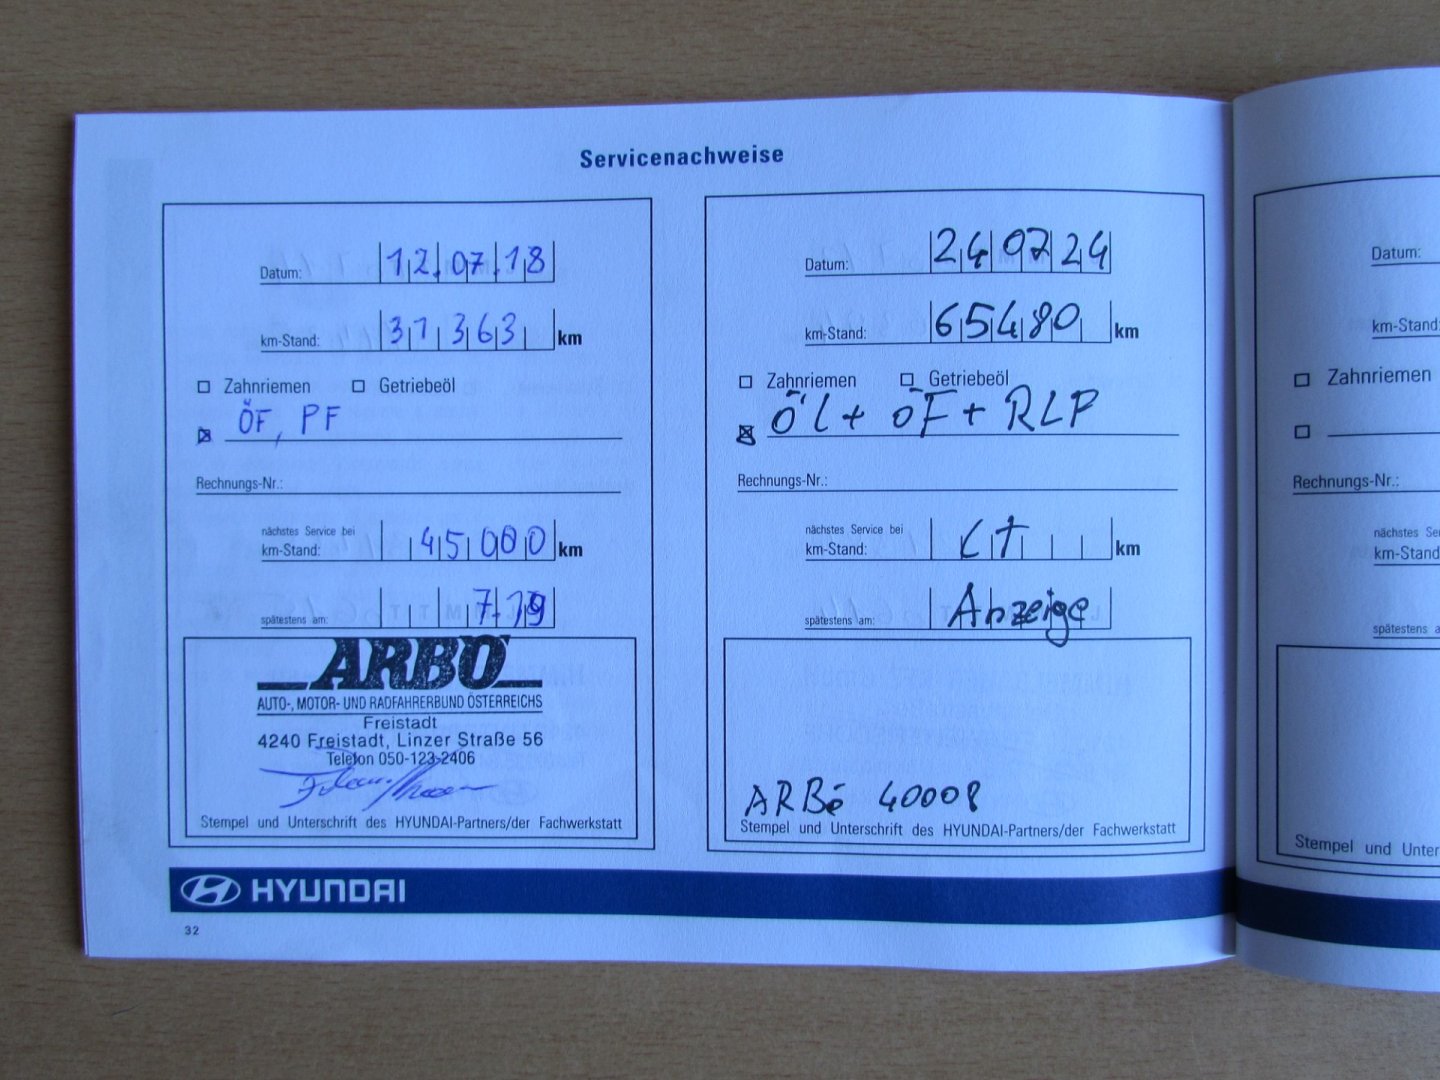 Servicenachweise
Datum: 12.07.18
km-Stand: 31363 km
Zahnriemen Getriebeöl
ÖF, PF
Rechnungs-Nr.:
nächstes Service bei
km-Stand: 45000 km
spätestens am: 7.19
ARBÖ
AUTO-, MOTOR- UND RADFAHRERBUND ÖSTERREICHS
Freistadt
4240 Freistadt, Linzer Straße 56
Telefon 050-123-2406
Stempel und Unterschrift des HYUNDAI-Partners/der Fachwerkstatt
Datum: 240724
km-Stand: 65480 km
Zahnriemen Getriebeöl
ÖL + ÖF + RLP
Rechnungs-Nr.:
nächstes Service bei
km-Stand: Lt km
spätestens am: Anzeige
ARBÖ 40008
Stempel und Unterschrift des HYUNDAI-Partners/der Fachwerkstatt
HYUNDAI
32
Datum:
km-Stand:
Zahnriemen
Rechnungs-Nr.:
nächstes Se
km-Stand
spätestens a
Stempel und Unter